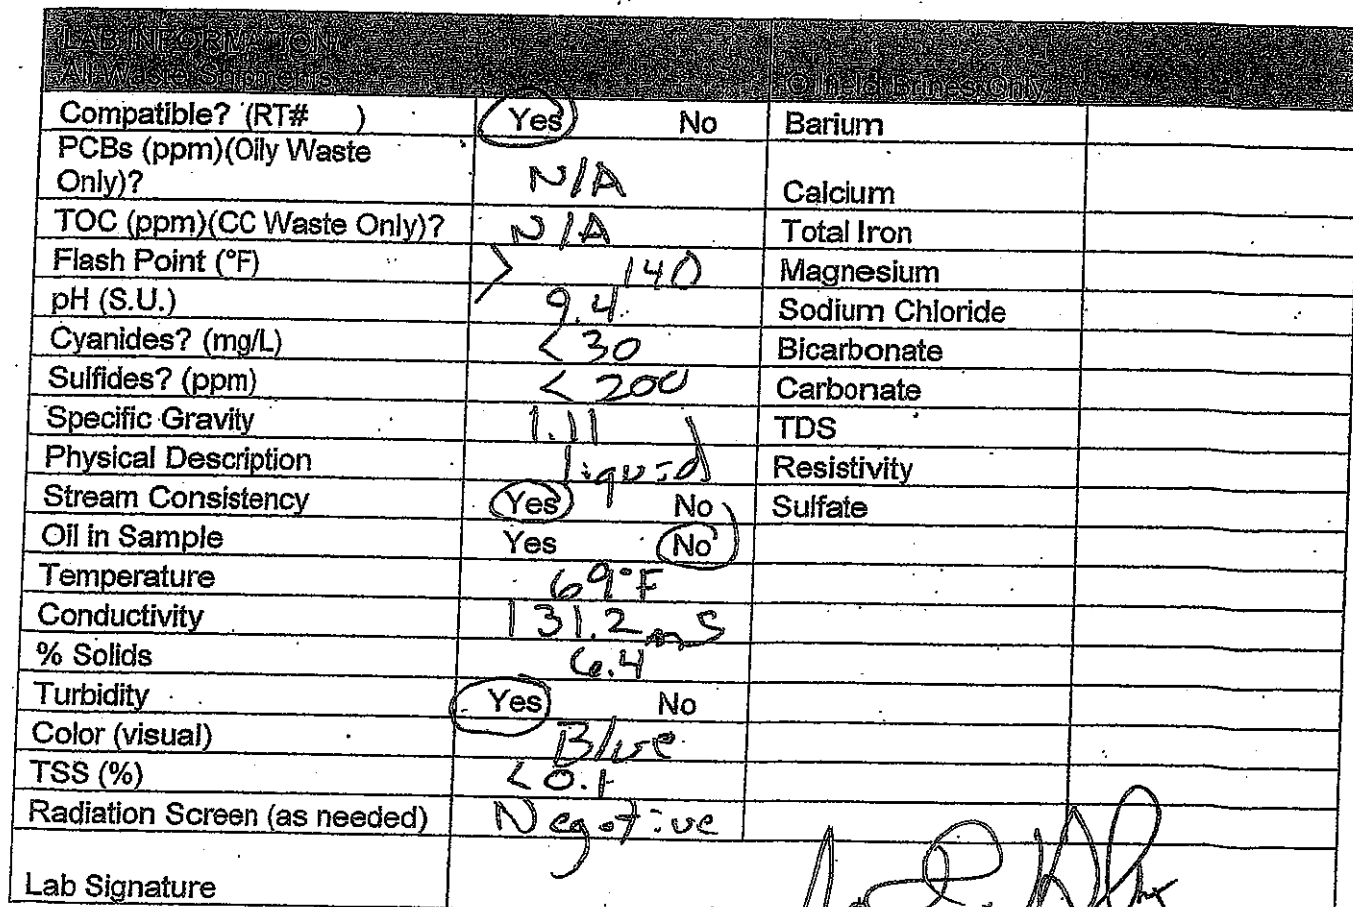 LAB INFORMATION
All Waste Shipments Oilfield Brines Only
Compatible? (RT# ) Yes No Barium
PCBs (ppm)(Oily Waste
Only)? N/A Calcium
TOC (ppm)(CC Waste Only)? N/A Total Iron
Flash Point (°F) > 140 Magnesium
pH (S.U.) 9.4 Sodium Chloride
Cyanides? (mg/L) <30 Bicarbonate
Sulfides? (ppm) <200 Carbonate
Specific Gravity 1.11 TDS
Physical Description liquid Resistivity
Stream Consistency Yes No Sulfate
Oil in Sample Yes No
Temperature 69°F
Conductivity 131.2 mS
% Solids 6.4
Turbidity Yes No
Color (visual) Blue
TSS (%) <0.1
Radiation Screen (as needed) Negative
Lab Signature